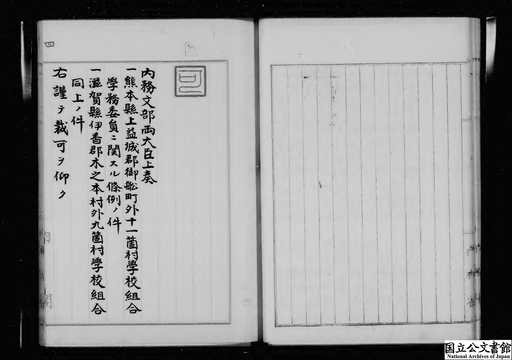 内務文部両大臣上奏
一熊本縣上益城郡御船町外十一箇村学校組合
学務委員ニ関スル條例ノ件
一滋賀縣伊香郡木之本村外九箇村学校組合
同上ノ件
右謹テ裁可ヲ仰ク
可
四
国立公文書館
National Archives of Japan